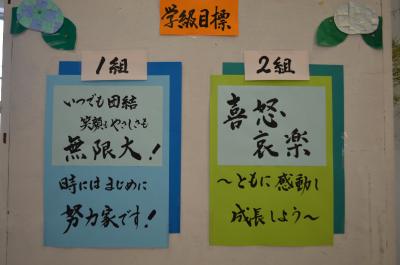 学級目標
1組
いつでも団結
笑顔もやさしさも
無限大!
時にはまじめに
努力家です!
2組
喜怒
哀楽
〜ともに感動し
成長しよう〜